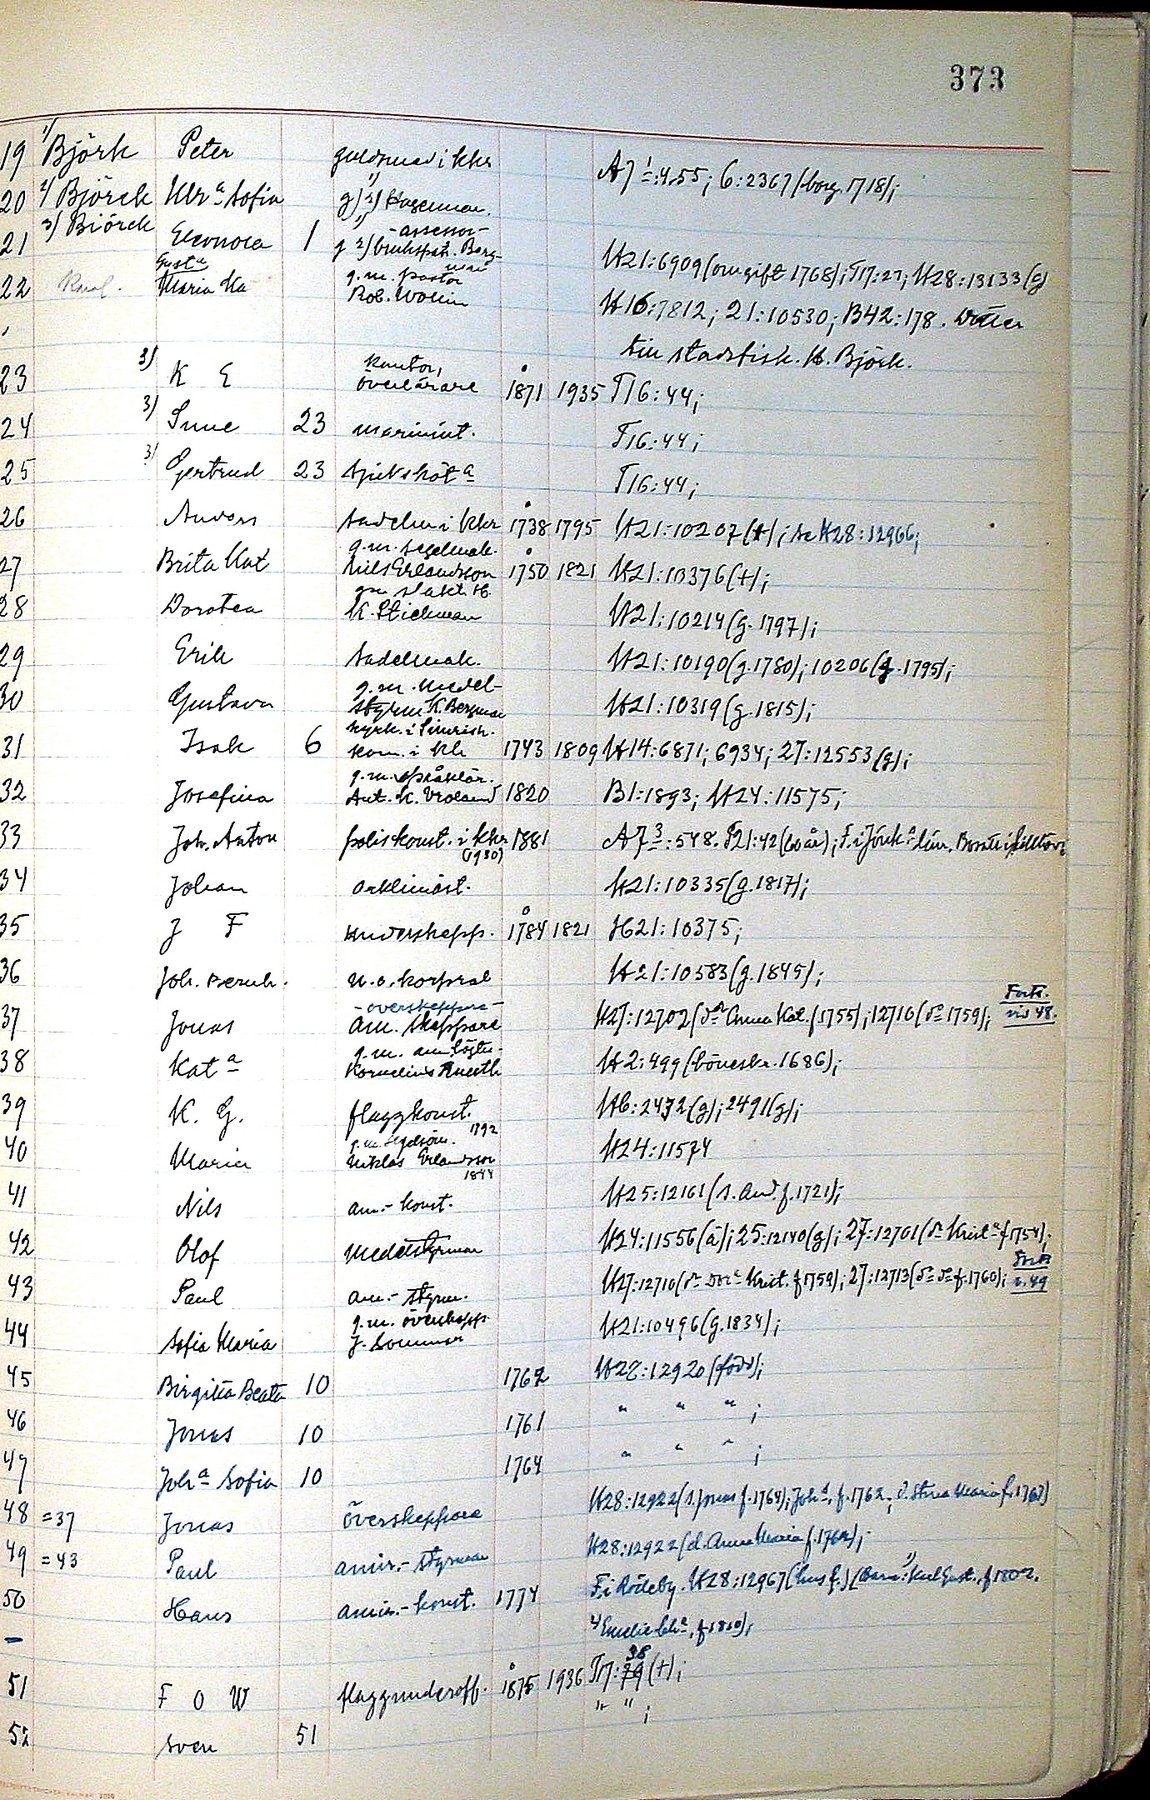 373
19 1/ Björk Peter guldsmed i kkr A7 1:4.55; 6:2367 (borg. 1718);
20 2/ Björck Ulr a Sofia g) 1) Hageman.
21 3/ Biörck Eleonora 1 -assessor- g 2) brukspat. Berg- man H21:6909 (omgift 1768); T17:27; H28:13133 (g)
22 Karl. Gust a Maria Ka g.m. pastor Rob. Wollin H16:7812; 21:10530; B42:178. Dotter
till stadsfisk. H. Björk.
23 3) K E kantor, överlärare 1871 1935 T16:44;
24 3) Sune 23 marinint. T16:44;
25 3) Gertrud 23 sjuksköt a T16:44;
26 Anders sadelm i kkr 1738 1795 H21:10207 (+); se H28:12966;
27 Brita Kat g.m. segelmak. Nils Erlandsson 1750 1821 H21:10376 (+);
28 Dorotea gm slakt. H. K. Stickman H21:10214 (g. 1797);
29 Erik sadelmak. H21:10190 (g. 1780); 10206 (g. 1795);
30 Gustava g.m. medel- styrm K. Bergman H21:10319 (g. 1815);
31 Isak 6 kyrk. i Simrish. kom. i kh 1743 1809 H14:6871; 6934; 27:12553 (g);
32 Josefina g.m. språklär. Ant. K. 1820 B1:1893; H24:11575;
33 Joh. Anton poliskonst. i kkr (1930) 1881 A7 3:548. S21:42 (60 år); F. i Jönk. a län. Bosatt i
34 Johan arklimäst. H21:10335 (g. 1817);
35 J F underskepp. 1784 1821 H21:10375;
36 Joh. Bernh. u.o. korpral H21:10583 (g. 1845);
37 Jonas -överskeppare- am. skeppare H27:12702 (d r Anna Kat. f. 1755); 12716 (d o 1759); Forts. vid 48.
38 Kat a g.m. am. löjtn. Kornelius H2:499 (bouestr. 1686);
39 K. G. flaggkonst. H6:2472 (g); 2491 (g);
40 Maria g.m. 1792 Niklas Erlandsson 1844 H24:11574
41 Nils am.-konst. H25:12161 (s. And. f. 1721);
42 Olof medelstyrman H24:11556 (a); 25:12140 (g); 27:12701 (d r Krist a f 1754);
43 Paul am.-styrm. H27:12710 (d r Krist. f 1759); 27:12713 (d o d o f. 1760); Forts v. 49
44 Sofia Maria g.m. överskepp. J. Sommar H21:10496 (g. 1834);
45 Birgitta Beata 10 1762 H28:12920 (född);
46 Jonas 10 1761 " " " ;
47 Joh a Sofia 10 1764 " " " ;
48 =37 Jonas överskeppare H28:12922 (s. Jonas f. 1764); Joh a. f. 1762; d. Stina Maria f. 1767)
49 =43 Paul amir.-styrman H28:12922 (d. Anna Maria f. 1762);
50 Hans amir.-konst. 1774 F. i Rödeby. H28:12967 (hus f.) (Barn: 1) Karl Gust., f. 1802.
f. 1810);
51 F O W flaggunderoff. 1875 1936 T17:38 (+);
52 Sven 51 " " ;